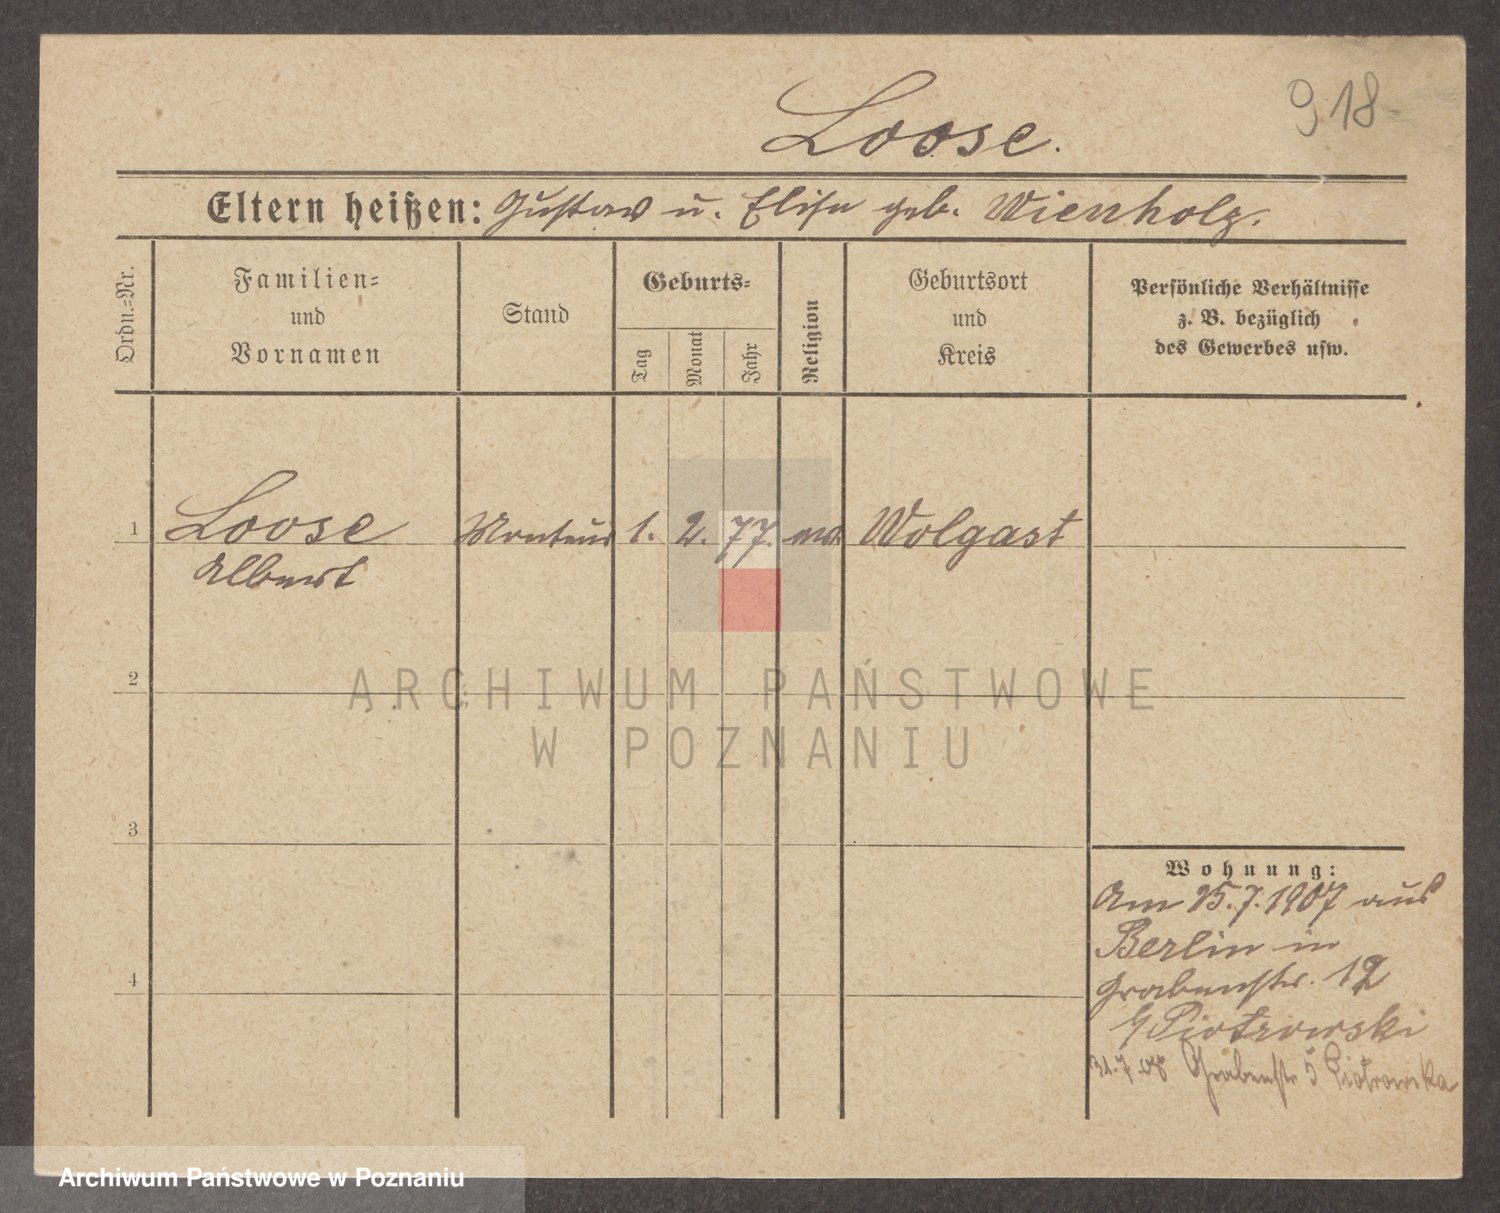 918
Loose.
Eltern heißen: Gustav u. Elise geb. Wienholz.
Ordn.=Nr.
Familien=
und
Vornamen
Stand
Geburts=
Tag
Monat
Jahr
Religion
Geburtsort
und
Kreis
Persönliche Verhältnisse
z. B. bezüglich
des Gewerbes usw.
1 Loose Monteur 1. 2. 77. Wolgast
Albert
2
ARCHIWUM PAŃSTWOWE
W POZNANIU
3
Wohnung:
Am 25.7.1907 aus
Berlin in
4
Grabenstr. 12
Piotrowski
31.7.08 Grabenstr 5 Piotrowska
Archiwum Państwowe w Poznaniu